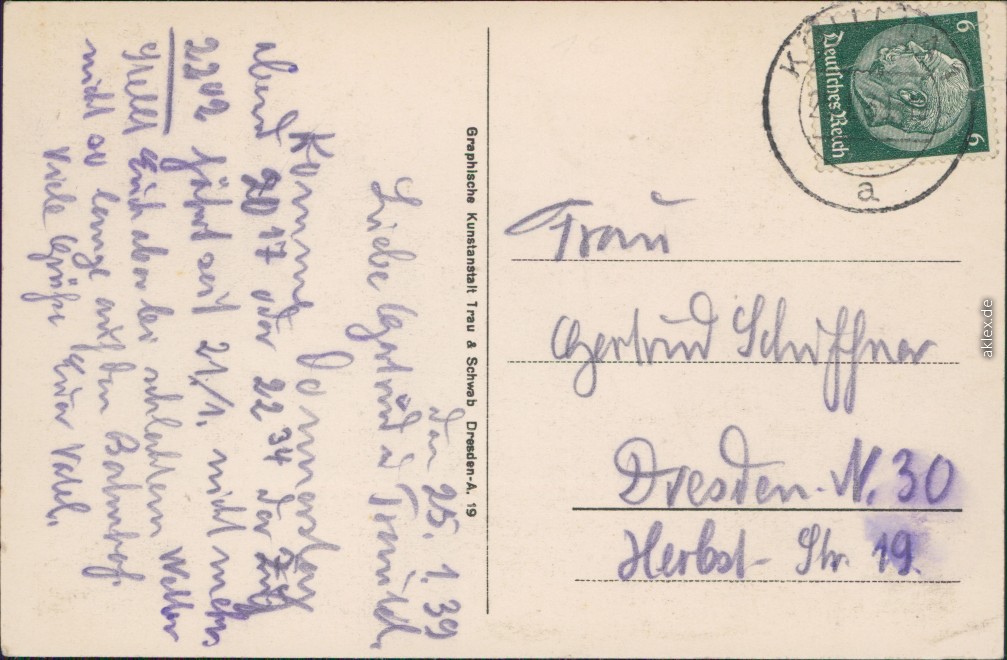 den 25. 1. 39
Liebe Gertrud u Traudl.
Komme Donnerstag
abend 20 17 oder 22 34 der Zug
22 42 fährt seit 21/1. nicht mehr
Stellt Euch aber bei schlechtem Wetter
nicht so lange auf den Bahnhof.
Viele Grüße Euer Vatel.
Graphische Kunstanstalt Trau & Schwab Dresden-A. 19
6
Deutsches Reich
6
a
Frau
Gertrud Schiffner
Dresden-N. 30
Herbst-Str. 19.
aklex.de